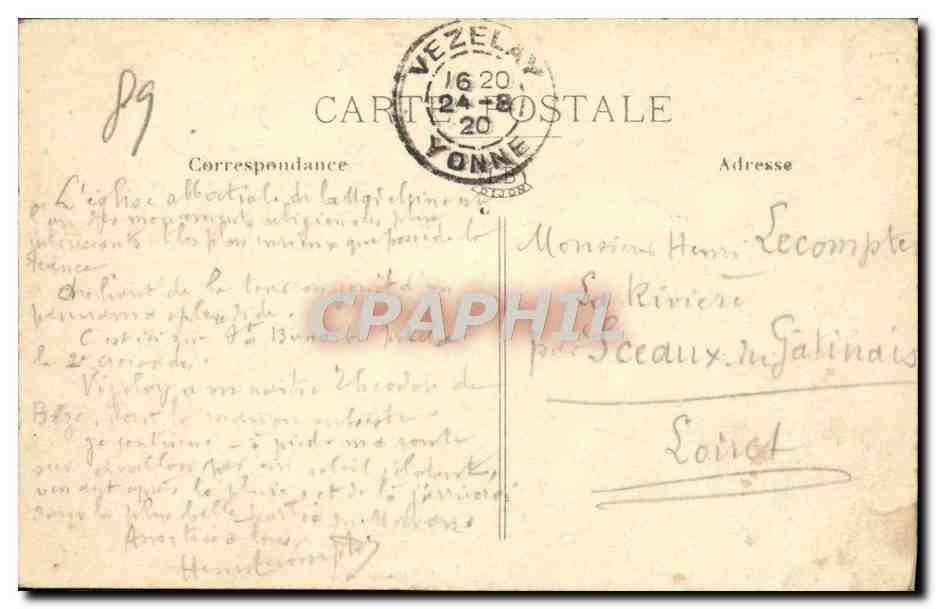 89
VEZELAY
16 20
24-8
20
YONNE
CARTE POSTALE
DIJON
Correspondance
Adresse
L'église abbatiale de la
un des monuments religieux les plus
intéressants et les plus curieux que possède la
France
du haut de la tour on jouit d'un
panorama splendide.
C'est ici que St Bernard prêcha
la 2e croisade.
Vézelay a vu naître Théodore de
Bèze, dont la maison
Je continue à pied ma route
sur Avallon par un soleil éclatant,
venant après la pluie, et de là j'arriverai
dans la plus belle partie du Morvan.
Amitiés à tous
Henri Lecompte
Monsieur Henri Lecompte
La Rivière
par Sceaux du Gâtinais
Loiret
CPARPHIL